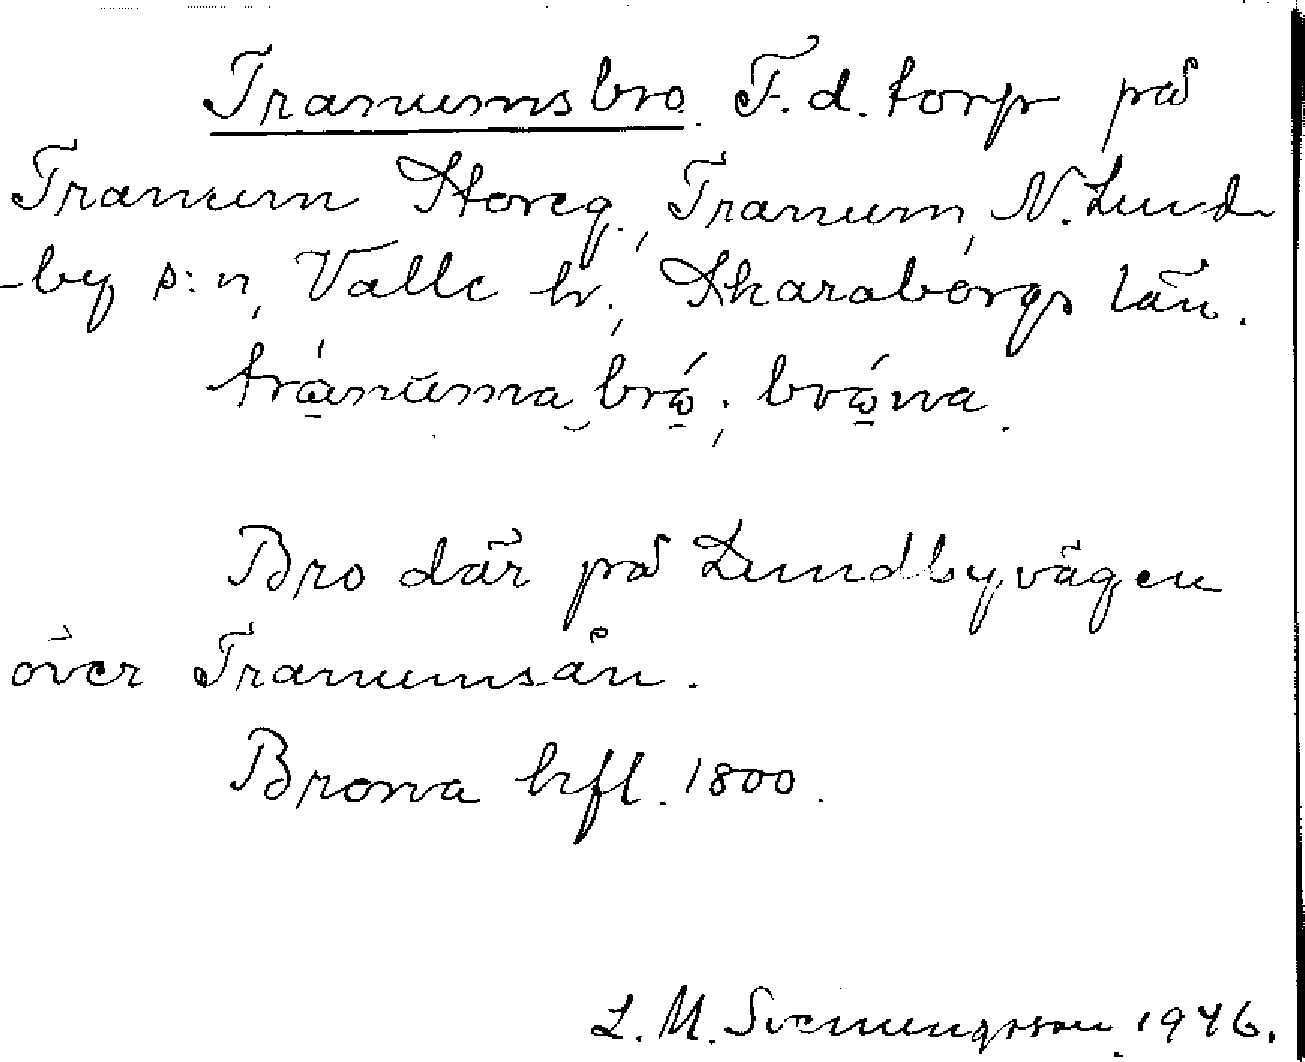 Tranumsbro. F.d. torp på
Tranum Storeg., Tranum, N. Lund-
-by s:n, Valle hd., Skaraborgs län.
Bro där på Lundbyvägen
över Tranumsån.
Brona hfl. 1800.
L. M. Svenungsson 1946.